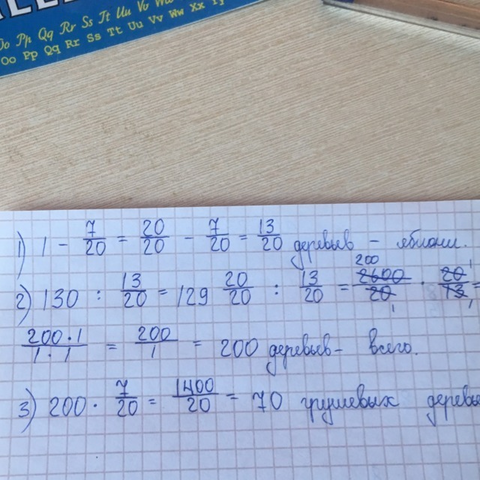 Oo Pp Qq Rr Ss Tt Uu Vv
Oo Pp Qq Rr Ss Tt Uu Vv Ww Xx Yy
1) 1 - 7/20 = 20/20 - 7/20 = 13/20 деревьев - яблони.
2) 130 : 13/20 = 129 20/20 : 13/20 = 2600/20 · 20/13 =
200 1 1 1
200·1/1·1 = 200/1 = 200 деревьев - всего.
3) 200 · 7/20 = 1400/20 = 70 грушевых